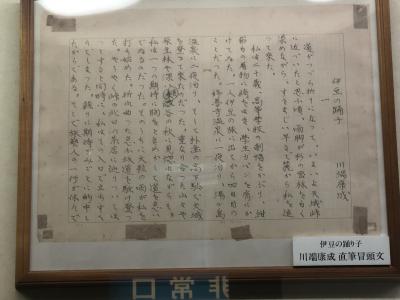 伊豆の踊子
川端康成
一
道がつづら折りになつて、いよいよ天城峠
に近づいたと思ふ頃、雨脚が杉の密林を白く
染めながら、すさまじい早さで麓から私を追
つて来た。
私は二十歳、高等学校の制帽をかぶり、紺
飛白の着物に袴をはき、学生カバンを肩にか
けてゐた。一人伊豆の旅に出てから四日目の
ことだつた。修善寺温泉に一夜泊り、湯ヶ島
温泉に二夜泊り、そして朴歯の高下駄で天城
を登つて来たのだつた。重なり合つた山々や
原生林や深い渓谷の秋に見惚れながらも、
私は一つの期待に胸をときめかして道を急い
でゐるのだつた。そのうちに大粒の雨が私を
打ち始めた。折れ曲つた急な坂道を駆け登つ
た。やうやく峠の北口の茶店に辿りついてほ
つとすると同時に、私はその入口で立ちすく
んでしまつた。余りに期待がみごとに的中し
たからである。そこで旅芸人の一行が休んで
伊豆の踊り子
川端康成 直筆冒頭文
非常口